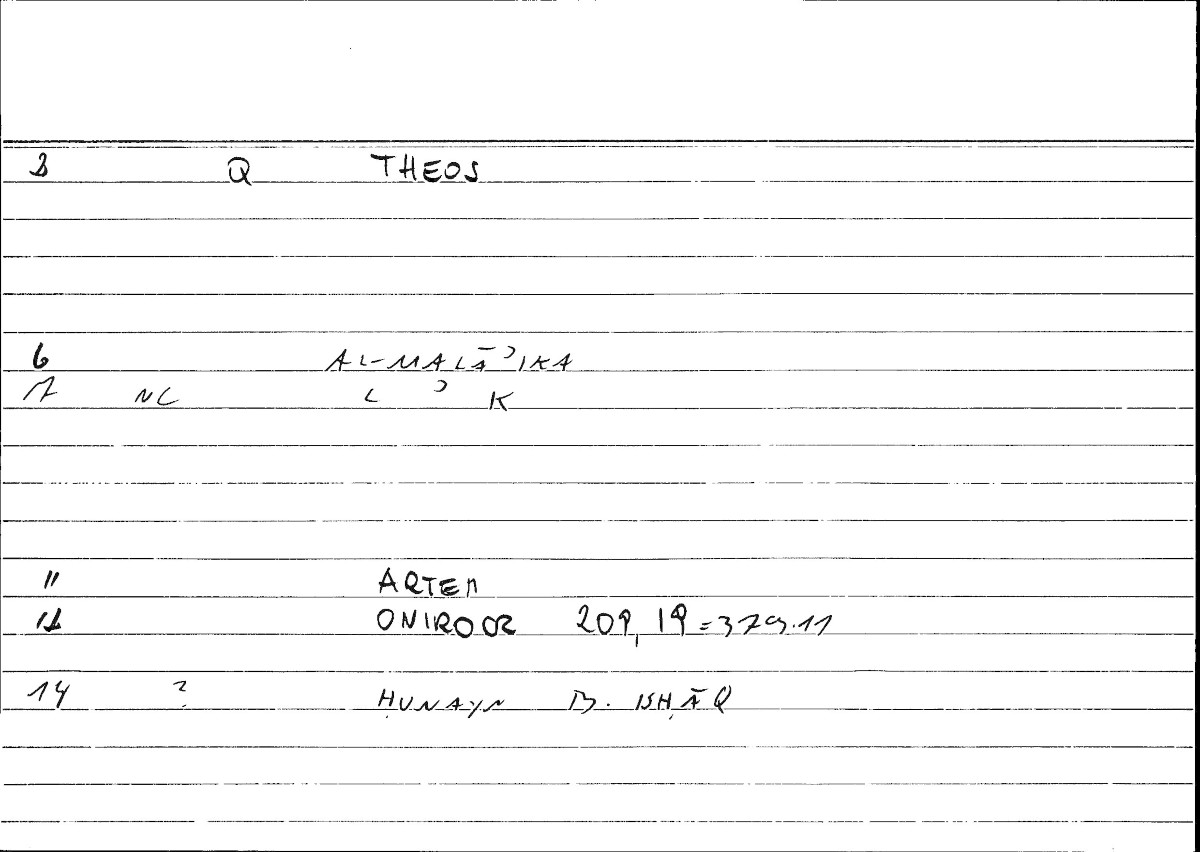 1 Q THEOS
6 AL-MALĀʾIKA
7 NC L ʾ K
11 ARTEM
12 ONIROCR 209,19=379.11
14 ? ḤUNAYN B. ISḤĀQ